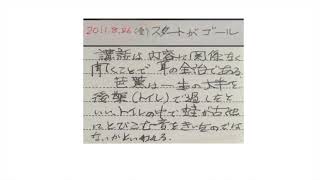 2011.8.26(金)スタートがゴール
講話は内容に関係なく
聞くことで耳の全治である
芭蕉は一生の大半を
後架(トイレ)で過したと
いい、トイレの中で蛙が古池
にとびこむ音をきいたのでは
ないかといわれる。